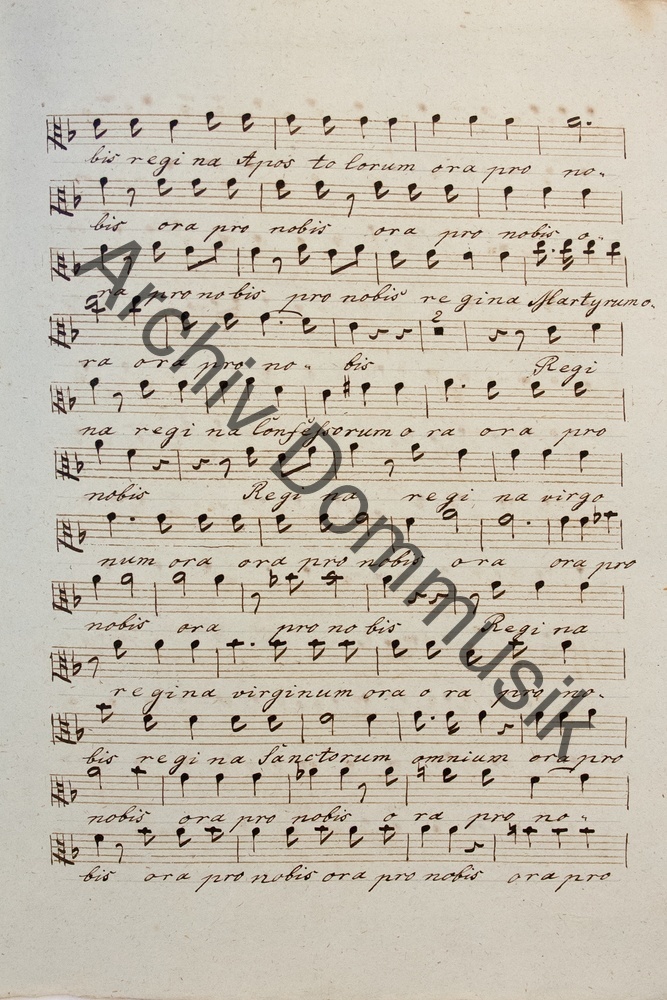 bis regi na Apos to lorum ora pro no-
bis ora pro nobis ora pro nobis o-
ra pro nobis pro nobis re gina Martyrum o-
2
ra ora pro no- bis Regi
na regi na Confessorum o ra ora pro
nobis Regi na regi na virgo
num ora ora pro nobis ora ora pro
nobis ora pro no bis Regi na
regina virginum ora o ra pro no-
bis regi na Sanctorum omnium ora pro
nobis ora pro nobis o ra pro no-
bis ora pro nobis ora pro nobis ora pro
Archiv Dommusik